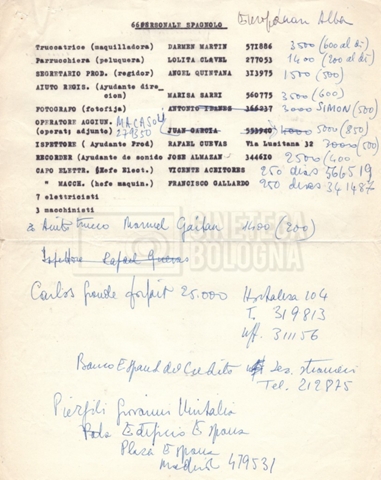 66PERSONALE SPAGNOLO
Truccatrice (maquilladora) DARMEN MARTIN 571886 3500 (600 al dì)
Parrucchiera (peluquera) LOLITA CLAVEL 277053 1400 (200 al dì)
SEGRETARIO PROD. (regidor) ANGEL QUINTANA 313975 1500 (500)
AIUTO REGIS. (Ayudante dire
cion) MARISA SARRI 560775 3500 (600)
FOTOGRAFO (fotofija) ANTONIO 3000 SIMON (500)
OPERATORE AGGIUN. MACASOLI
(operat; adjunto) 279350 JUAN GARCIA 5000 (850)
ISPETTORE (Ayudante Prod) RAFAEL CUNVAS Via Lusitana 32 3000 (500)
RECORDER (Ayudante de sonido JOSE ALMASAN 344610 2500 (400)
CAPO ELETTR. (Hefe Elect.) VICENTE ACHITORES 250 dias 366519
" MACCH. (hefe maquin.) FRANCISCO GALLARDO 250 dias 341487
7 elettricisti
3 macchinisti
Aiuto trucco Manuel Gaitan 1400 (200)
Ispettore Rafael Cuevas
Carlos grande forfait 25.000 Hortalesa 104
T. 319813
uff. 311156
Banco Espanol del Credito Des. stranieri
Tel. 212875
Pierfili Giovanni Unitalia
Edificio Espana
Plaza Espana
Madrid 479531
CINETECA
BOLOGNA